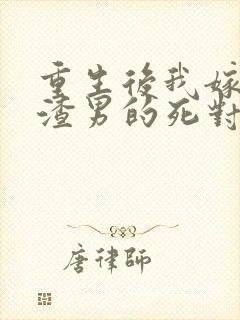 重生後我嫁
渣男的死對
唐律師